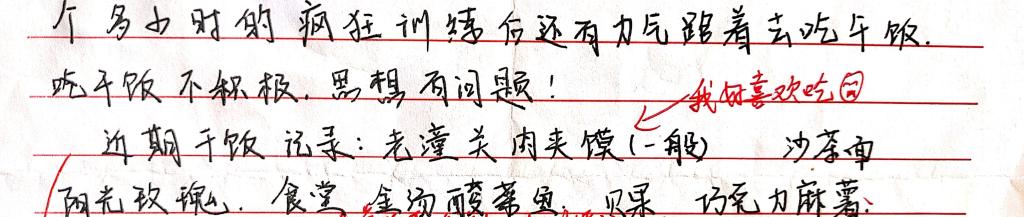 个多小时的疯狂训练后还有力气跟着去吃干饭.
吃干饭不积极.思想有问题!
我好喜欢吃
近期干饭记录:老潼关肉夹馍(一般) 沙茶面
阳光玫瑰.食堂金汤酸菜鱼.贝果 巧克力麻薯;